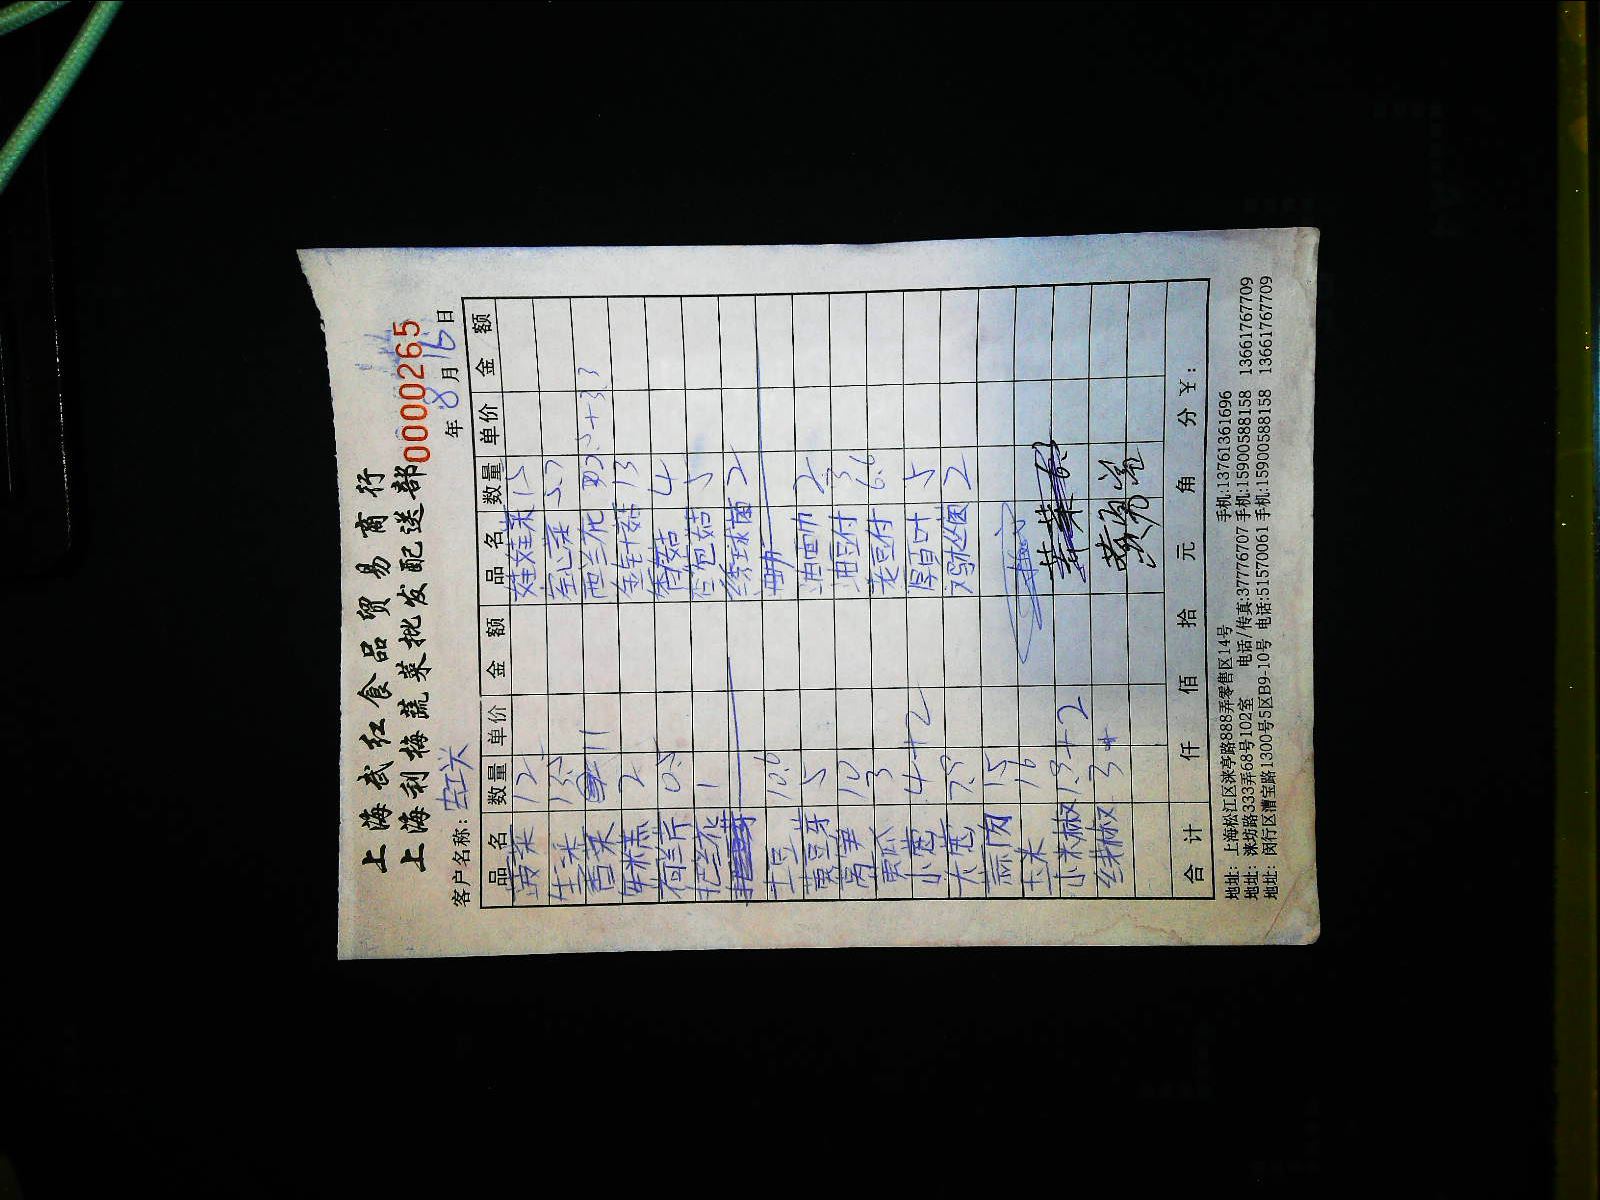 上海武红食品贸易商行
上海利梅蔬菜批发配送部
0000265
客户名称: 左江兴 年 8 月 16 日
品 名 数量 单价 金 额 品 名 数量 单价 金 额
菠菜 12 娃娃菜 15
生菜 13.5 空心菜 5.7
香菜 11 西兰花
年糕 2 金针菇 13
荷兰芹 0.5 香菇 4
把兰花 1 杏包菇 5
绣球菌 2
土豆 10.6
黄豆芽 5 油面巾 2
莴笋 10 油豆付 3
黄瓜 3 老豆付 6.6
小葱 4+2 厚百叶 5
大葱 7.9 鸡纵菌 2
蒜肉 15
玉米 16
小米椒 1.9+2
线椒 3
合 计 仟 佰 拾 元 角 分 ¥:
地址: 上海松江区涞亭路888弄零售区14号 手机:13761361696
地址: 涞坊路333弄68号102室 电话/传真:37776707 手机:15900588158 13661767709
地址: 闵行区漕宝路1300号5区B9-10号 电话:51570061 手机:15900588158 13661767709